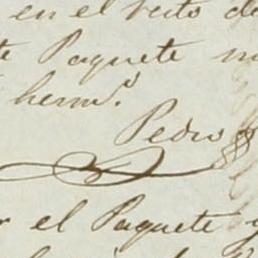 en el resto de
te Paquete
herm.º
Pedro
r el Paquete y